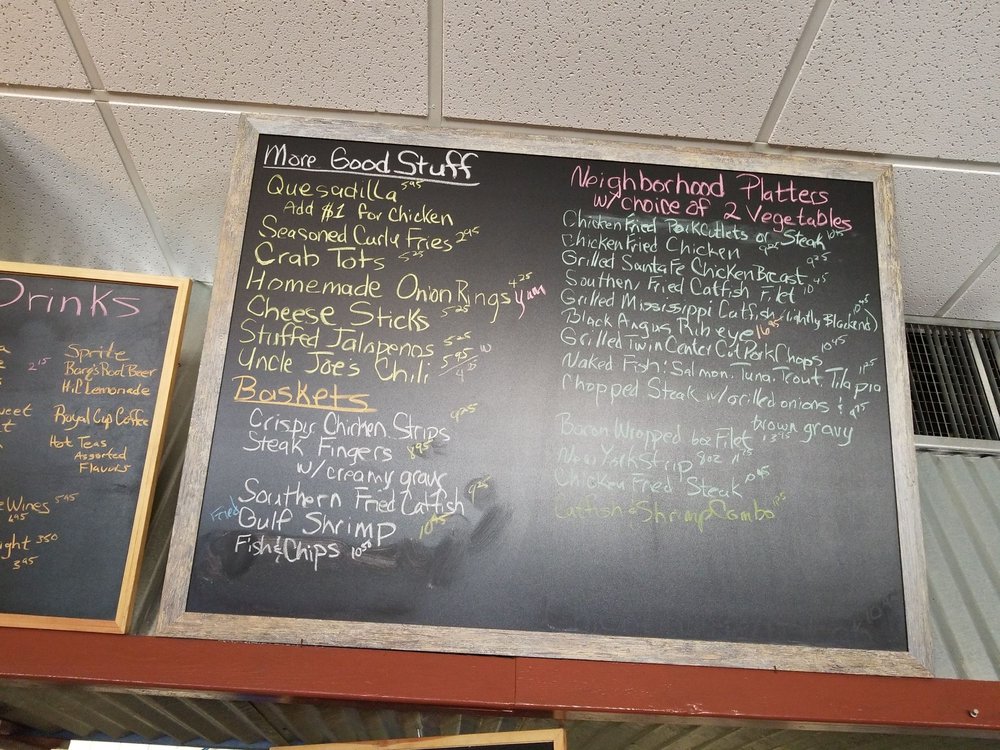 Drinks
Sprite
2.15
Barg's Root Beer
Hi C Lemonade
Royal Cup Coffee
Hot Teas
Assorted
Flavors
Wines 5.95
6.95
3.50
3.95
More Good Stuff
Quesadilla 5.95
Add $1 for Chicken
Seasoned Curly Fries 2.95
Crab Tots 5.25
Homemade Onion Rings 4.25 yum
Cheese Sticks 5.25
Stuffed Jalapenos 5.25
Uncle Joe's Chili 5.95
4.25
Baskets
Crispy Chicken Strips 9.25
Steak Fingers 8.95
w/ creamy gravy
Southern Fried Catfish 9.25
Fried Gulf Shrimp 10.95
Fish & Chips 10.50
Neighborhood Platters
w/ choice of 2 Vegetables
Chicken Fried Pork Cutlets or Steak 10.45
Chicken Fried Chicken 9.25
Grilled Santa Fe Chicken Breast 9.25
Southern Fried Catfish Filet 10.45
Grilled Mississippi Catfish (lightly Blackend) 10.45
Black Angus Rib eye
Grilled Twin Center Cut Pork Chops 10.45
Naked Fish: Salmon, Tuna, Trout, Tilapia 11.25
Chopped Steak w/ grilled onions & 9.95
brown gravy
Bacon Wrapped 6oz Filet 13.95
New York Strip 9oz
Chicken Fried Steak 10.45
Catfish & Shrimp Combo